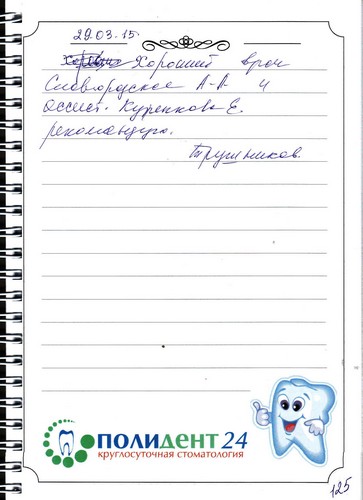 29.03.15
Хороший врач
Славгородская А-А и
ассист. Куренкова Е.
рекомендую.
Трушников.
ПОЛИДЕНТ 24
круглосуточная стоматология
125